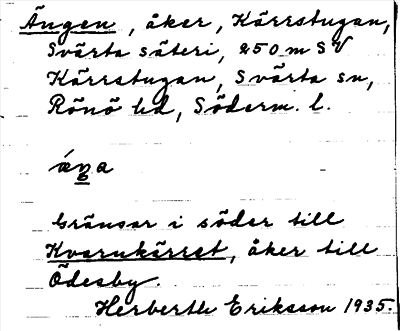 Ängen, åker, Kärrstugan,
Svärta säteri, 250 m SV
Kärrstugan, Svärta sn,
Rönö hd, Söderm. l.
Gränsar i söder till
Kvarnkärret, åker till
Ödesby.
Herberth Eriksson 1935.